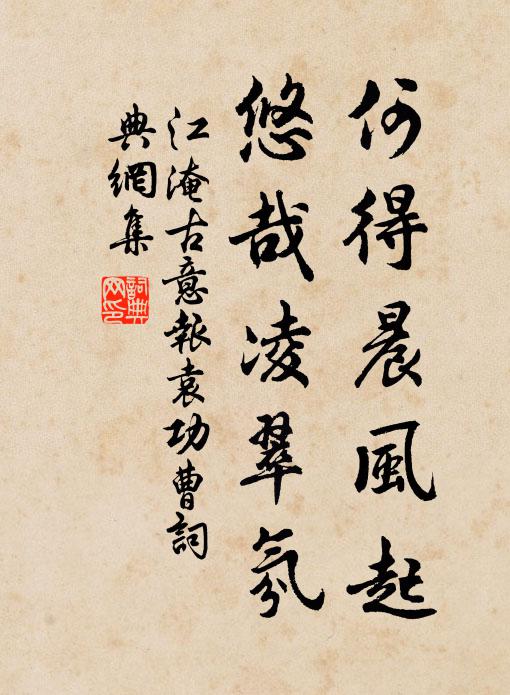 何得晨風起
悠哉凌翠氛
江淹古意報袁功曹詞
典網集
詞典網印